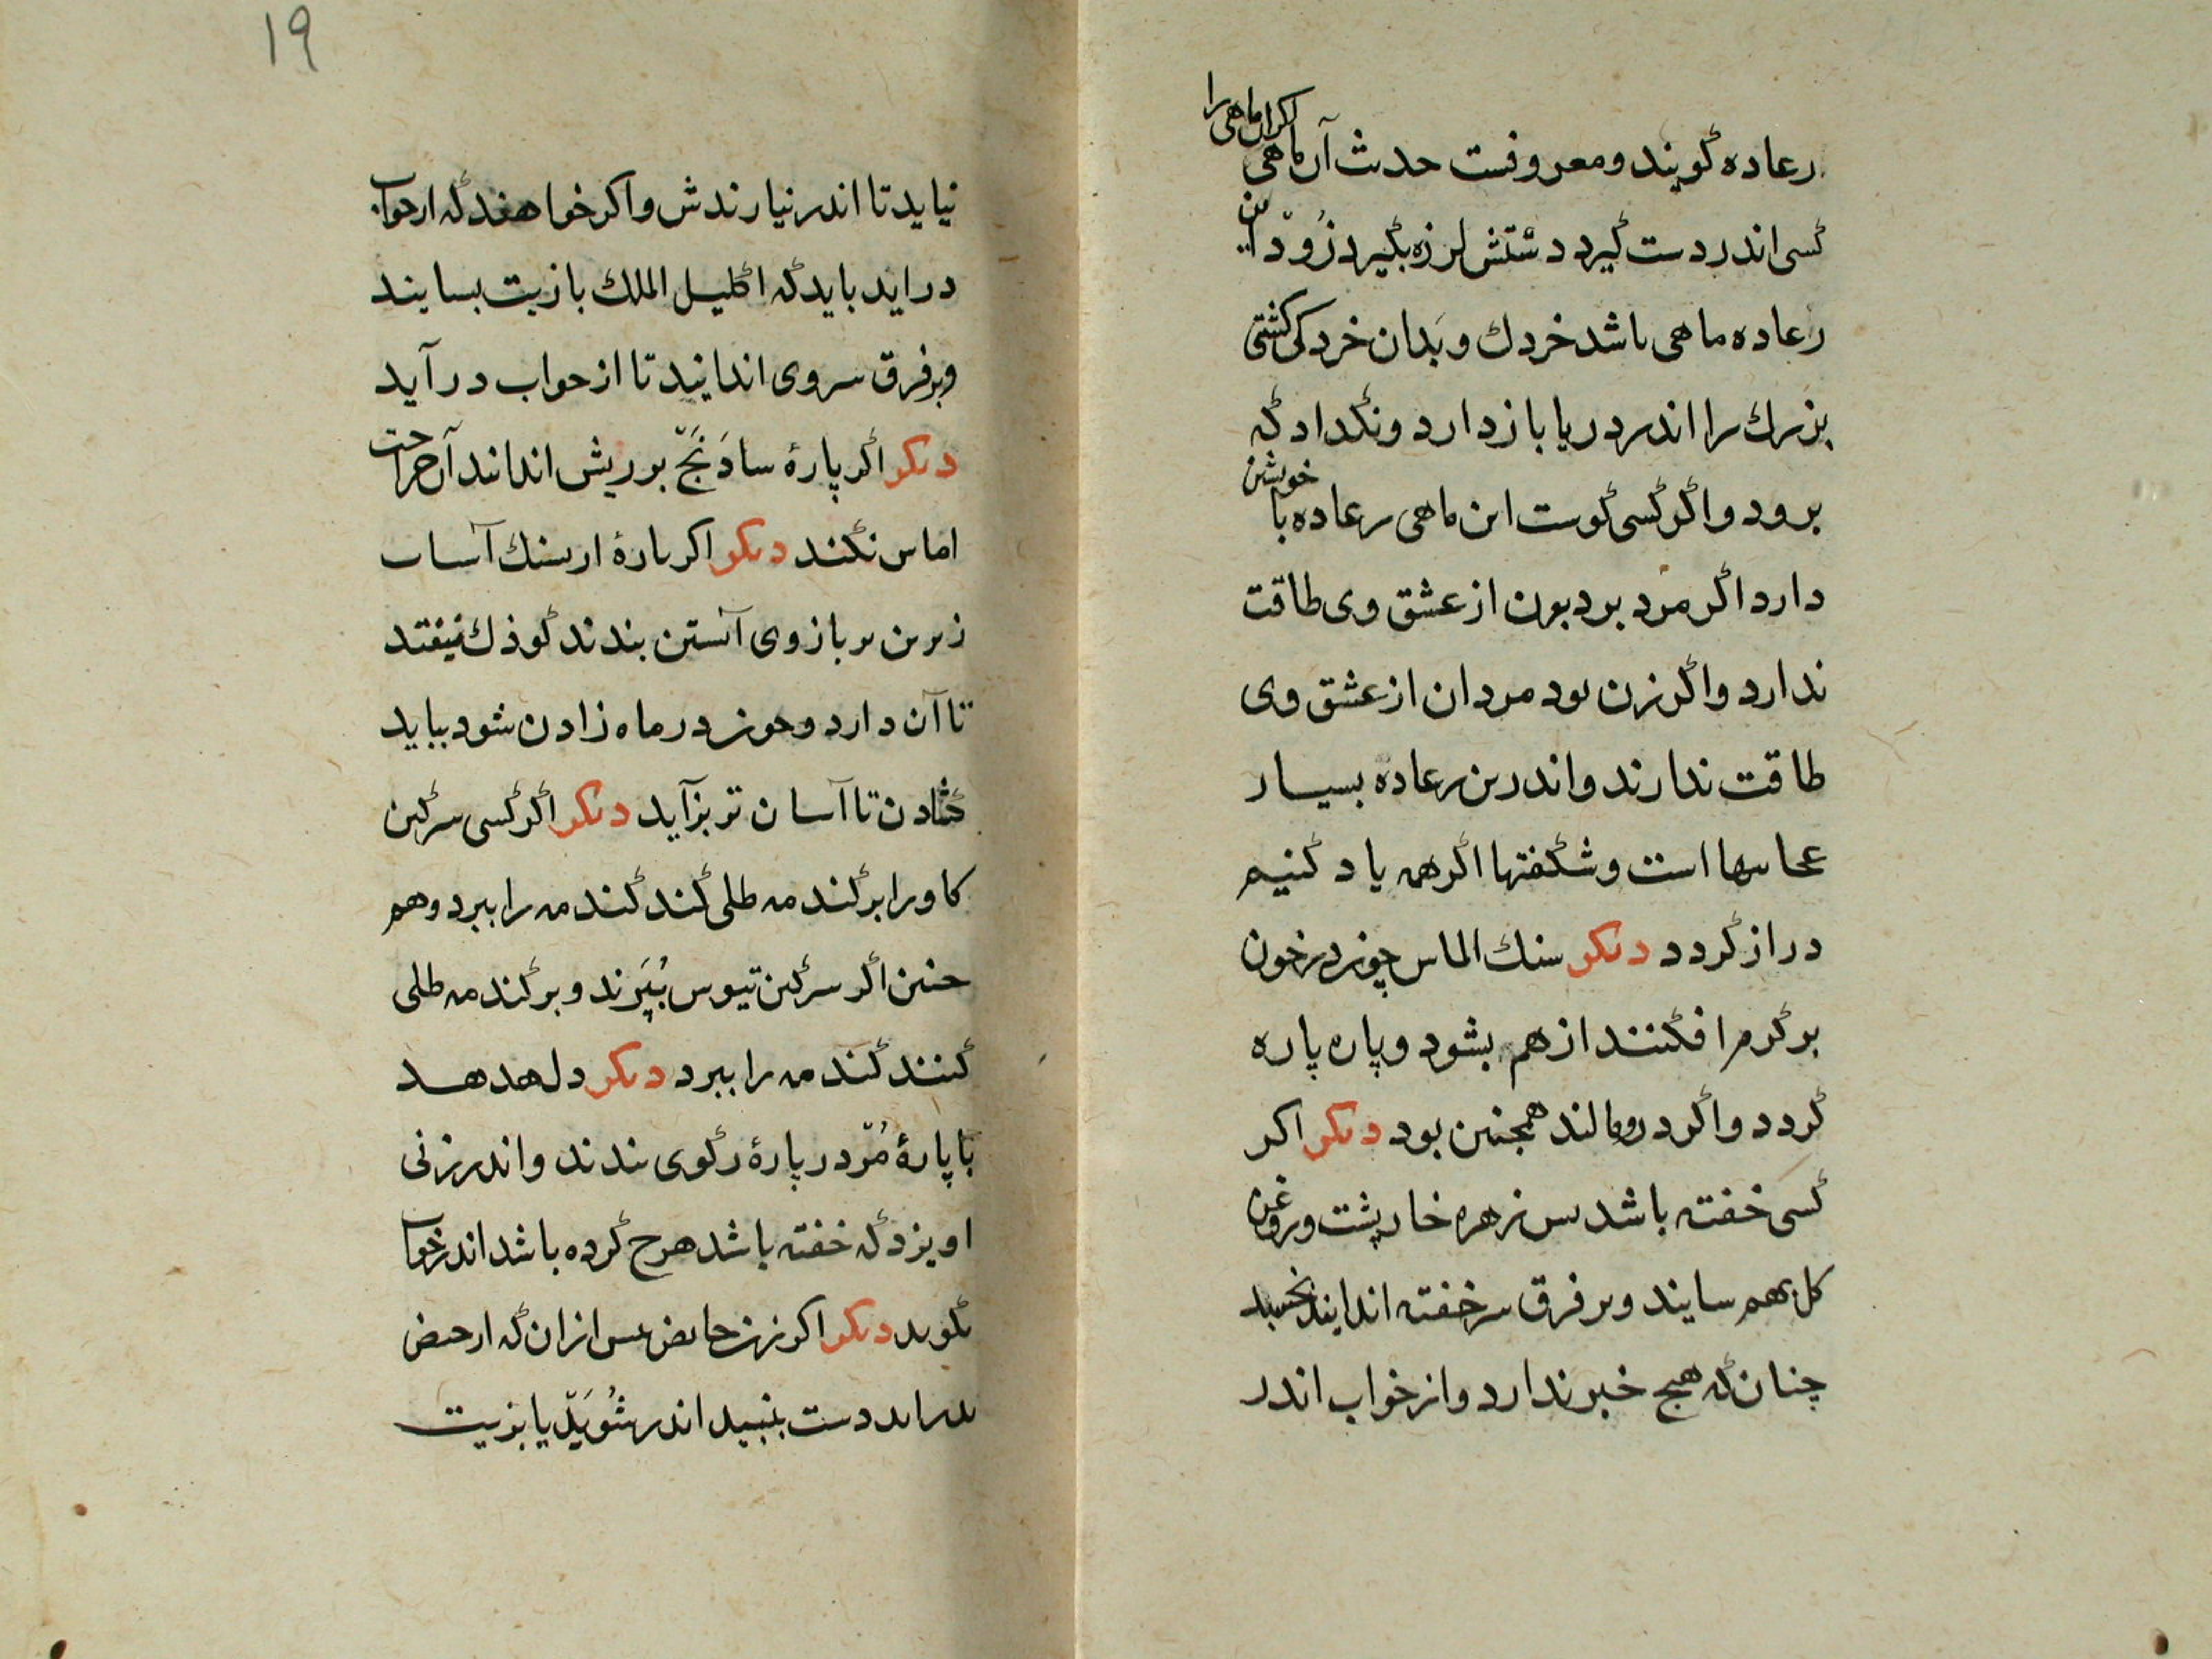 رعاده گویند ومعروفست حدث آن ماهی اکران ماهی را
کسی اندر دست گیرد دستش لرزه بگیرد زود این
رعاده ماهی باشد خردك وبدان خردکی کشتی
بزرك را اندر دریا باز دارد ونگداد که
برود واگر کسی گوست این ماهی رعاده با خویشن
دارد اگر مرد برد بون از عشق وی طاقت
ندارد واگر زن بود مردان از عشق وی
طاقت ندارند واندرین رعاده بسیار
عجایبها است وشگفتها اگر همه یاد کنیم
دراز گردد دیکر سنك الماس چون در خون
بز گرم افکنند از هم بشود وپاره پاره
گردد واگر درو مالند همچنین بود دیکر اکر
کسی خفته باشد پس زهره خارپشت وروغن
کل بهم سایند وبر فرق سر خفته اندایند بخسبد
چنان که هیچ خبر ندارد واز خواب اندر
۱۹
نیاید تا اندر نیارندش واکر خواهند که از خواب
دراید باید که اکلیل الملك بازیت بسایند
وبر فرق سر وی اندایند تا از خواب درآید
دیکر اگر پارهٔ سادنج بر ریش اندانند آن جراحت
اماس نکند دیکر اکر بارهٔ ار سنك آسیاب
زیرین بر بازوی آبستن بندند کوذك نیفتد
تا آن دارد وچون در ماه زادن شود بباید
گشادن تا آسان تر بزآید دیکر اگر کسی سرگین
کاو را بر گندمه طلی کند گندمه را ببرد وهم
چنین اگر سرگین تیوس بپزند وبر گندمه طلی
کنند گندمه را ببرد دیکر دل هدهد
با پارهٔ مرّ در پارهٔ رگوی بندند واندر زنی
اویزد که خفته باشد هرج کرده باشد اندر خواب
بگوید دیکر اکر زن حایض پس از ان که از حیض
بدراید دست بنبید اندر شوید یا بزیت